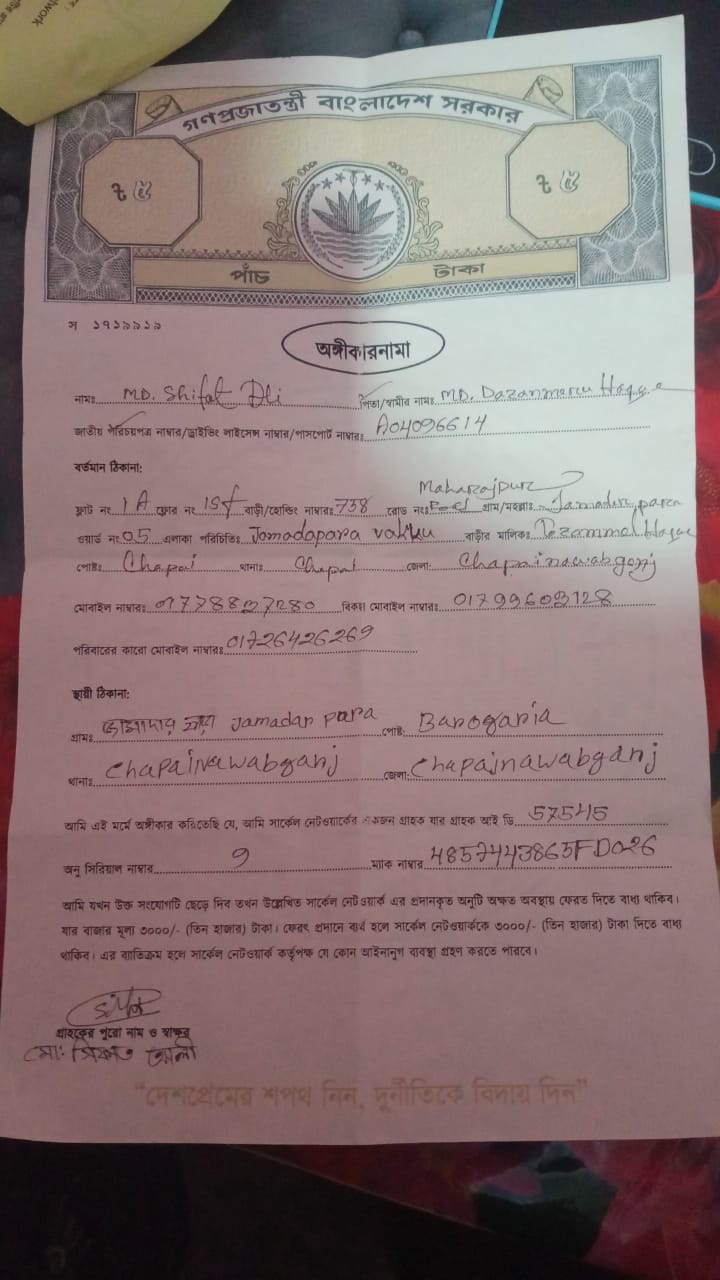 twork
গণপ্রজাতন্ত্রী বাংলাদেশ সরকার
৳ ৫ ৳ ৫
পাঁচ টাকা
স ১৭১৯৯১৯
অঙ্গীকারনামা
নামঃ MD. Shifat Ali পিতা/স্বামীর নামঃ MD. Haque
জাতীয় পরিচয়পত্র নাম্বার/ড্রাইভিং লাইসেন্স নাম্বার/পাসপোর্ট নাম্বারঃ A04096614
বর্তমান ঠিকানা:
Maharajpur
ফ্লাট নং 1A ফ্লোর নং 1st বাড়ী/হোল্ডিং নাম্বারঃ 738 রোড নংঃ গ্রাম/মহল্লাঃ Jamadar para
ওয়ার্ড নং 05 এলাকা পরিচিতিঃ Jamadapara বাড়ীর মালিকঃ Haque
পোষ্টঃ Chapai থানাঃ Chapai জেলা: Chapainawabganj
মোবাইল নাম্বারঃ 01778837280 বিকল্প মোবাইল নাম্বারঃ 01799603128
পরিবারের কারো মোবাইল নাম্বারঃ 01726426269
স্থায়ী ঠিকানা:
গ্রামঃ জামাদার পাড়া Jamadar para পোষ্ট: Barogaria
থানাঃ Chapainawabganj জেলা: Chapainawabganj
আমি এই মর্মে অঙ্গীকার করিতেছি যে, আমি সার্কেল নেটওয়ার্কের একজন গ্রাহক যার গ্রাহক আই ডি 57545
অনু সিরিয়াল নাম্বার 9 ম্যাক নাম্বার 4857443865FD026
আমি যখন উক্ত সংযোগটি ছেড়ে দিব তখন উল্লেখিত সার্কেল নেটওয়ার্ক এর প্রদানকৃত অনুটি অক্ষত অবস্থায় ফেরত দিতে বাধ্য থাকিব।
যার বাজার মূল্য ৩০০০/- (তিন হাজার) টাকা। ফেরৎ প্রদানে ব্যর্থ হলে সার্কেল নেটওয়ার্ককে ৩০০০/- (তিন হাজার) টাকা দিতে বাধ্য
থাকিব। এর ব্যতিক্রম হলে সার্কেল নেটওয়ার্ক কর্তৃপক্ষ যে কোন আইনানুগ ব্যবস্থা গ্রহণ করতে পারবে।
গ্রাহকের পুরো নাম ও স্বাক্ষর
মো: সিফাত আলী
"দেশপ্রেমের শপথ নিন, দুর্নীতিকে বিদায় দিন"